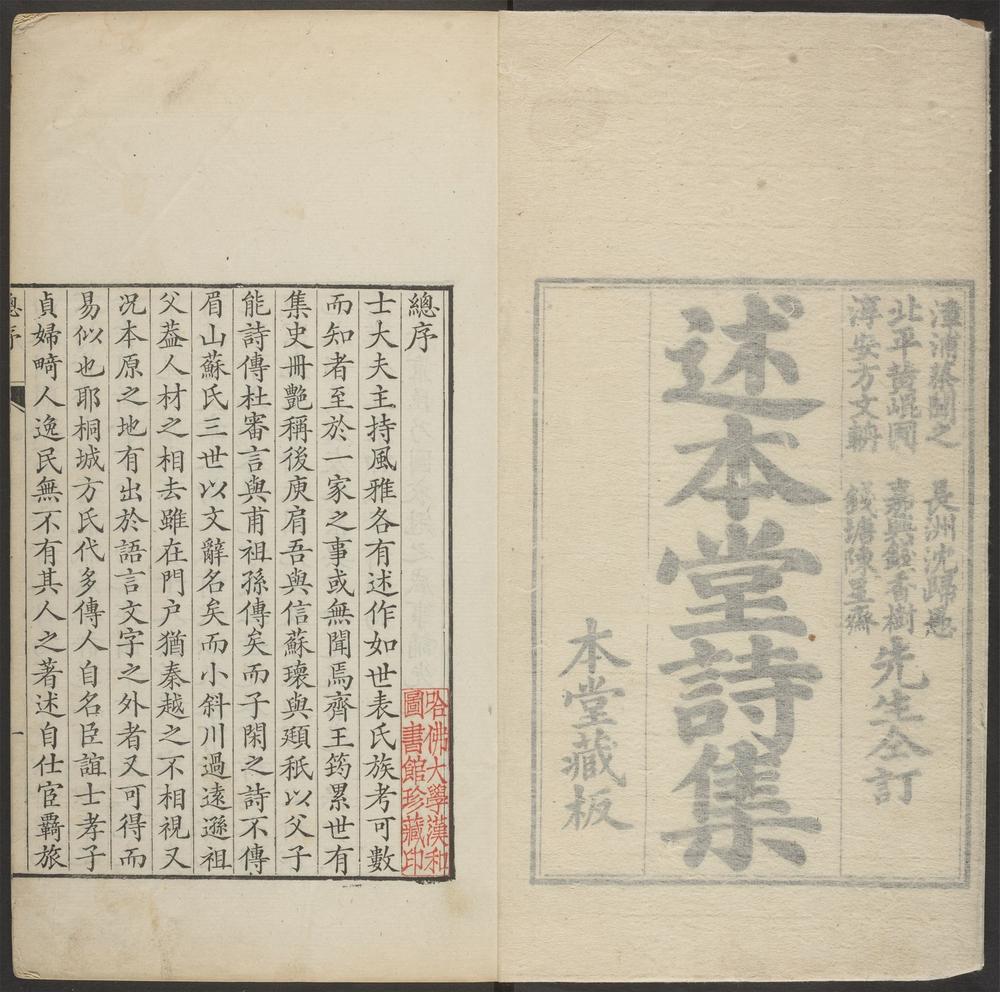 漳浦蔡聞之　長洲沈歸愚
北平黄崐圃　嘉興錢香樹
淳安方文輈　錢塘陳星齋
先生仝訂
述本堂詩集
本堂藏板
總序
士大夫主持風雅各有述作如世表氏族考可數
而知者至於一家之事或無聞焉齊王筠累世有
集史冊艷稱後庾肩吾與信蘇瓌與頲秖以父子
能詩傳杜審言與甫祖孫傳矣而子閑之詩不傳
眉山蘇氏三世以文辭名矣而小斜川過遠遜祖
父葢人材之相去雖在門户猶秦越之不相視又
况本原之地有出於語言文字之外者又可得而
易似也耶桐城方氏代多傳人自名臣誼士孝子
貞婦畸人逸民無不有其人之著述自仕宦覊旅
總序
一
哈佛大學漢和
圖書館珍藏印